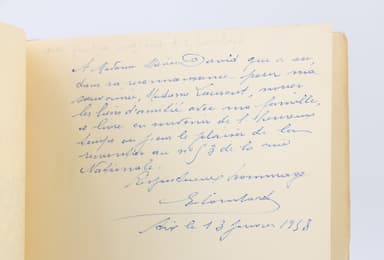 A Madame David que a su
dans sa reconnaissance pour ma
Madame Laurent, nouer
les liens d'amitié avec ma famille,
ce livre en mémoire de l'heureux
temps où j'eus le plaisir de la
rencontrer au n° 53 de la rue
Nationale.
Respectueux hommage
le 13 janvier 1958